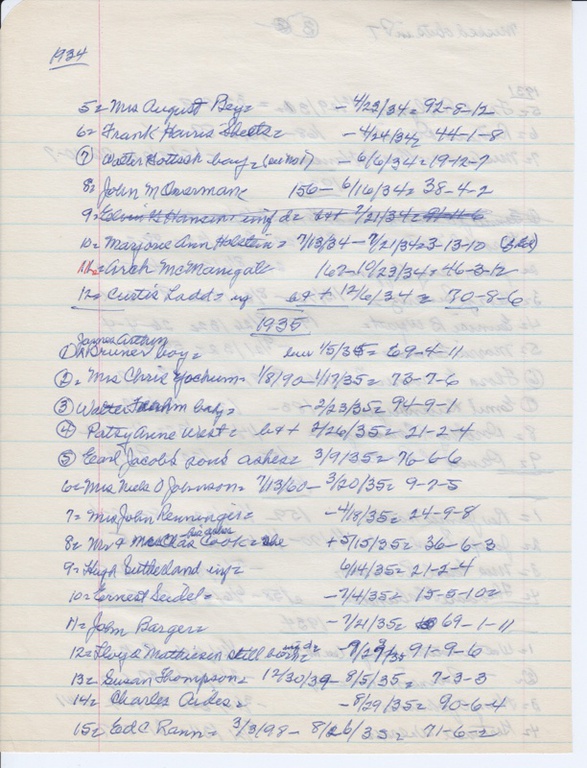 1934
5= Mrs August Bey= - 4/23/34= 92-8-12
6= Frank Harris = - 4/24/34= 44-1-8
7 Walter baby= (see no 1) - 6/6/34= 19-12-7
8= John M Overman= 156- 6/16/34= 38-4-2
9= Edwin H Hanson= inf d= b+ 7/21/34=
10= Marjorie Ann Holstein= 7/13/34- 7/21/34= 3-13-10
11= Arch McManigal= 162- 10/23/34= 46-3-12
12= Curtis Ladd= inf b+ 12/6/34= 70-8-6
1935
James Arthur
1 Bruner boy= 1/5/35= 69-4-11
2= Mrs Chris Yochum= 1/8/90- 1/17/35= 73-7-6
3 Walter baby= - 2/23/35= 94-9-1
4= Patsy Anne West= b+ 2/26/35= 21-2-4
5 Earl Jacobs sons ashes= 3/9/35= 76-6-6
6= Mrs Neils O Johnson= 7/13/60- 3/20/35= 9-7-5
7= Mrs John Renninger= - 4/18/35= 24-9-8
8= Mr & Mrs Chas Cook= +5/15/35= 36-6-3
9= Hugh Sutherland inf= 6/14/35= 21-2-4
10= Ernest Seidel= - 7/4/35= 15-5-10=
11= John Barger= - 7/21/35= 69-1-11
12= Floyd Mathiesen still born= inf d= - 7/29/35 91-9-6
13= Susan Thompson= 12/30/39- 8/5/35= 7-3-3
14= Charles - 8/29/35= 90-6-4
15= Ed C Rann= 3/3/98- 8/26/35= 71-6-2